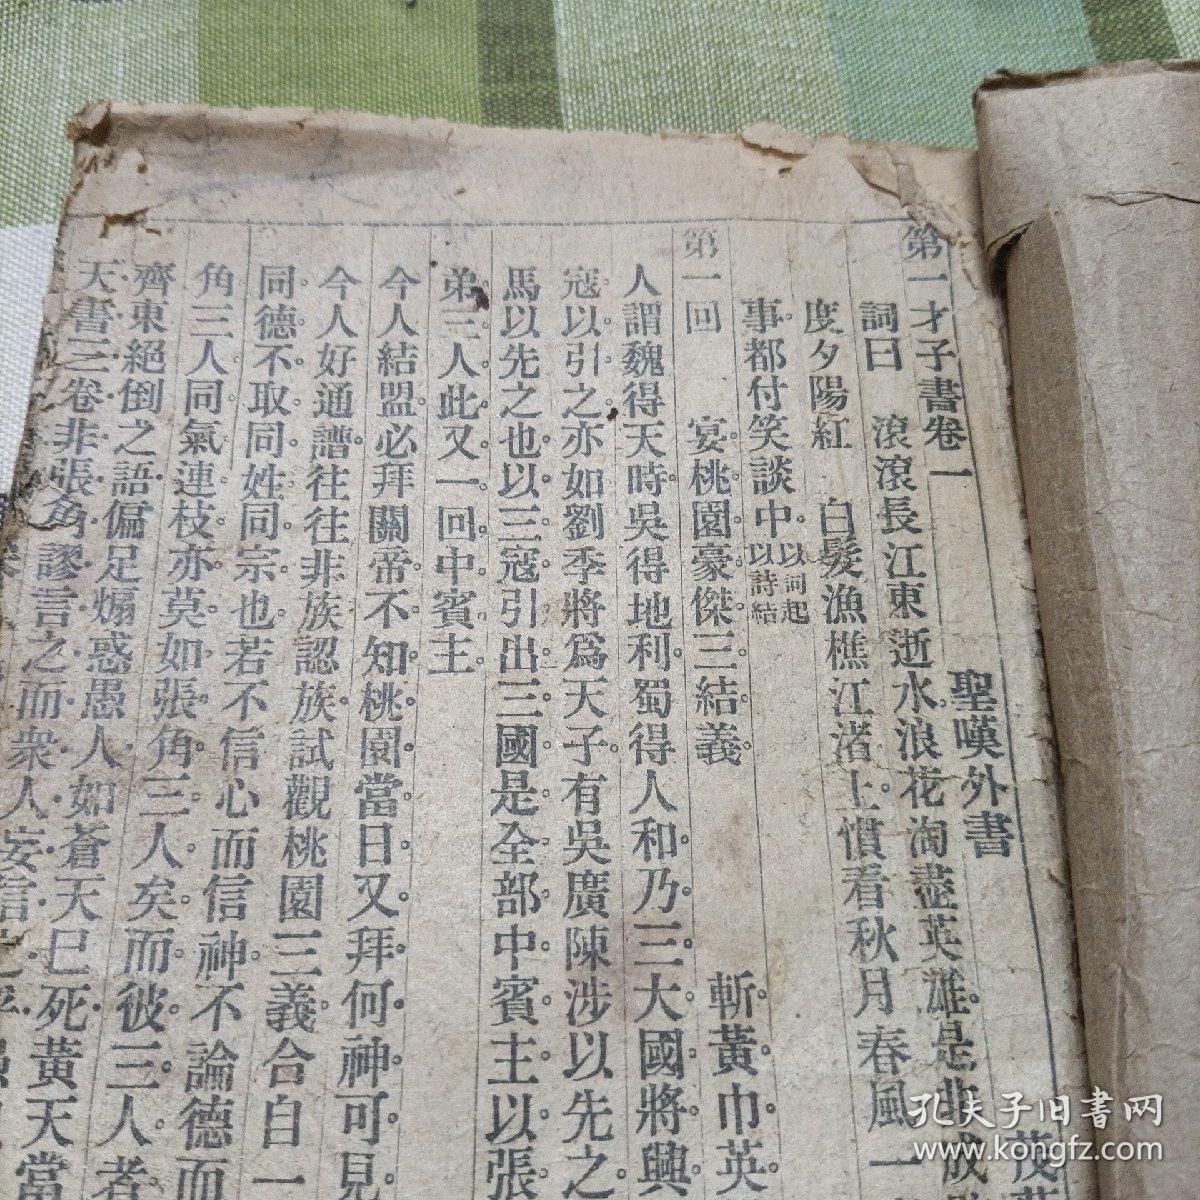 第一才子書卷一
聖嘆外書
茂
詞曰 滾滾長江東逝水浪花淘盡英雄是非成
度夕陽紅 白髮漁樵江渚上慣看秋月春風一
事都付笑談中以詞起以詩結
第一回 宴桃園豪傑三結義 斬黃巾英
人謂魏得天時吳得地利蜀得人和乃三大國將興
寇以引之亦如劉季將爲天子有吳廣陳涉以先之
馬以先之也以三寇引出三國是全部中賓主以張
弟三人此又一回中賓主
今人結盟必拜關帝不知桃園當日又拜何神可見
今人好通譜往往非族認族試觀桃園三義合自一
同德不取同姓同宗也若不信心而信神不論德而
角三人同氣連枝亦莫如張角三人矣而彼三人者
齊東絕倒之語偏足煽惑愚人如蒼天已死黃天當
天書三卷非張角謬言之而衆人妄信
孔夫子旧书网
www.kongfz.com